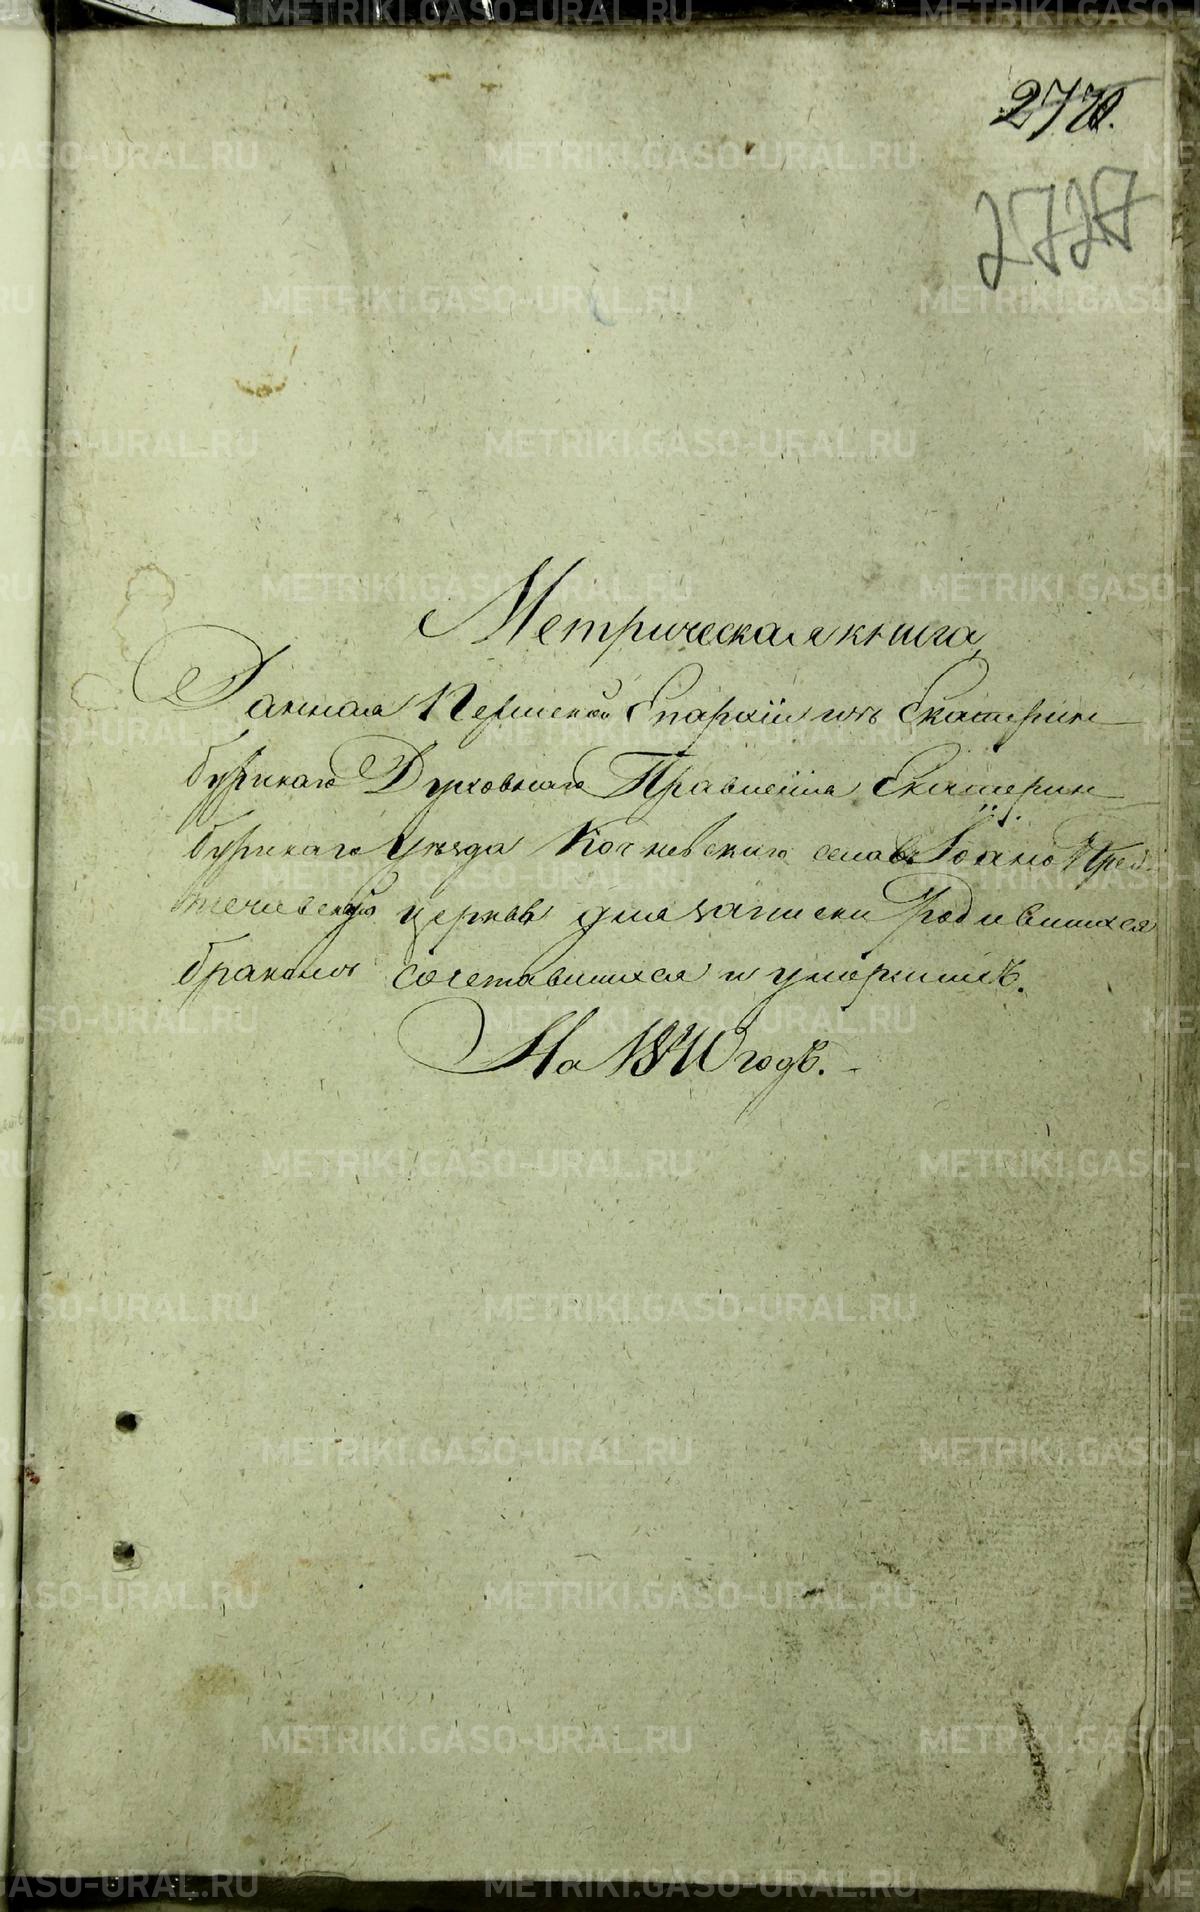 2727
Метрическая книга
Данная Пермской Епархіи изъ Екатерин
бургскаго Духовнаго Правленія Екатерин
бургскаго Уѣзда Кочневскаго села въ Іоанно Пред
течевскую церковь для записки Родившихся
бракомъ сочетавшихся и умершихъ.
На 1840 годъ.
METRIKI.GASO-URAL.RU